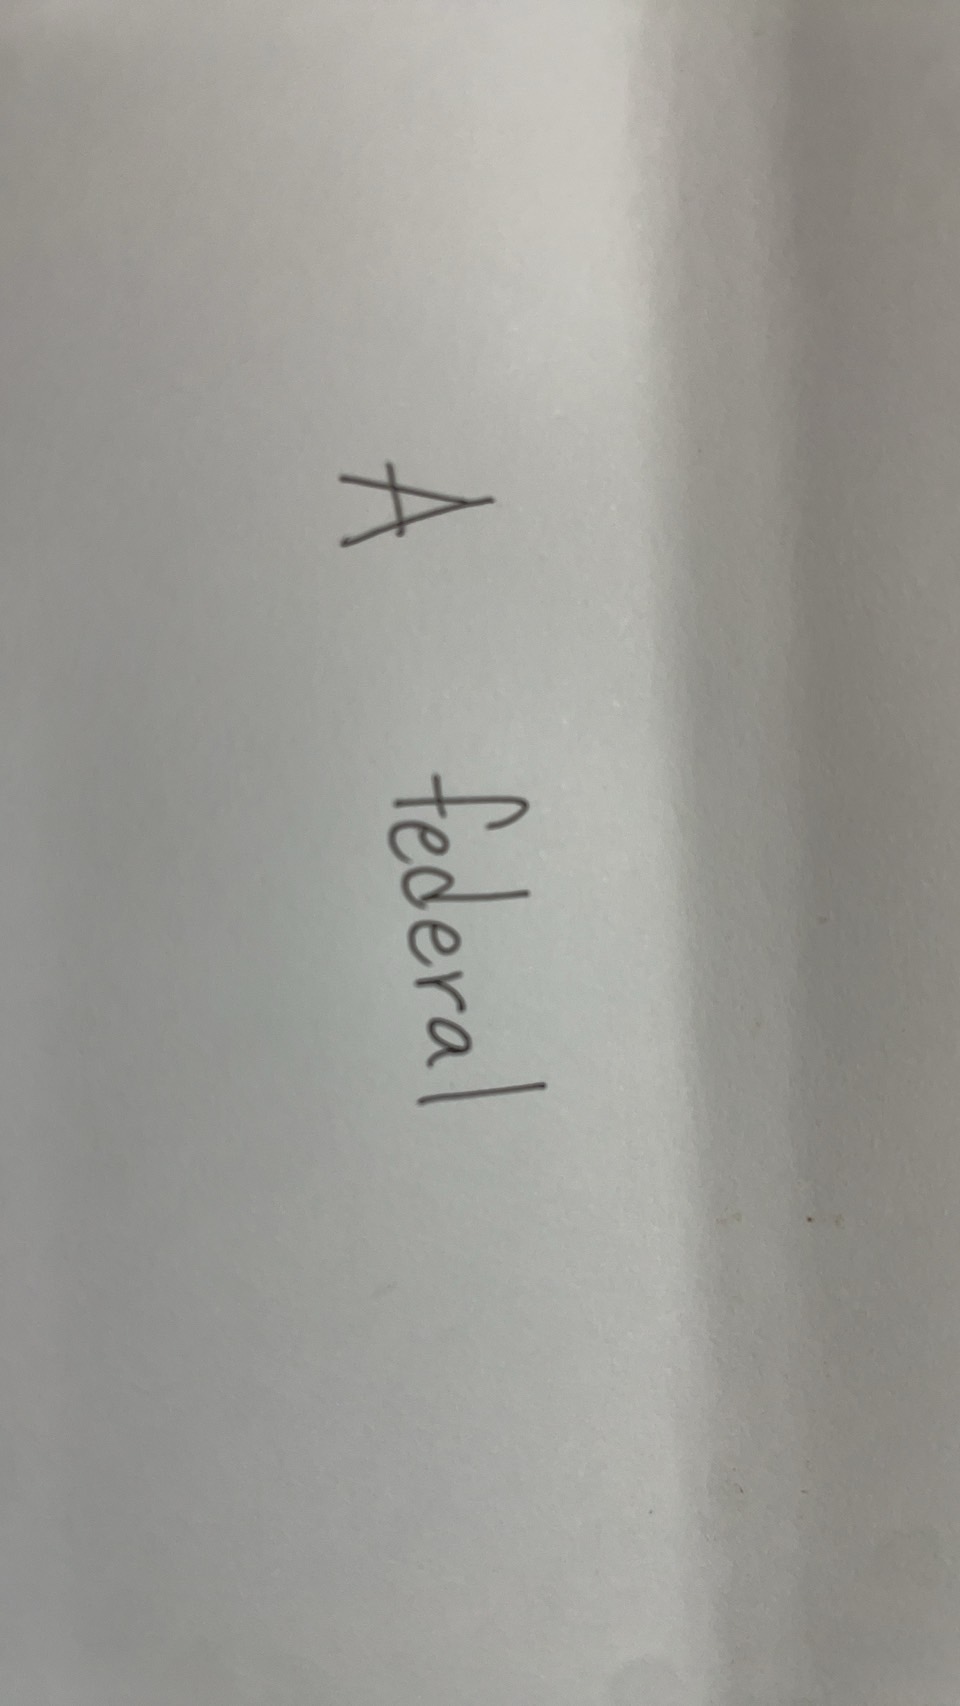 A federal